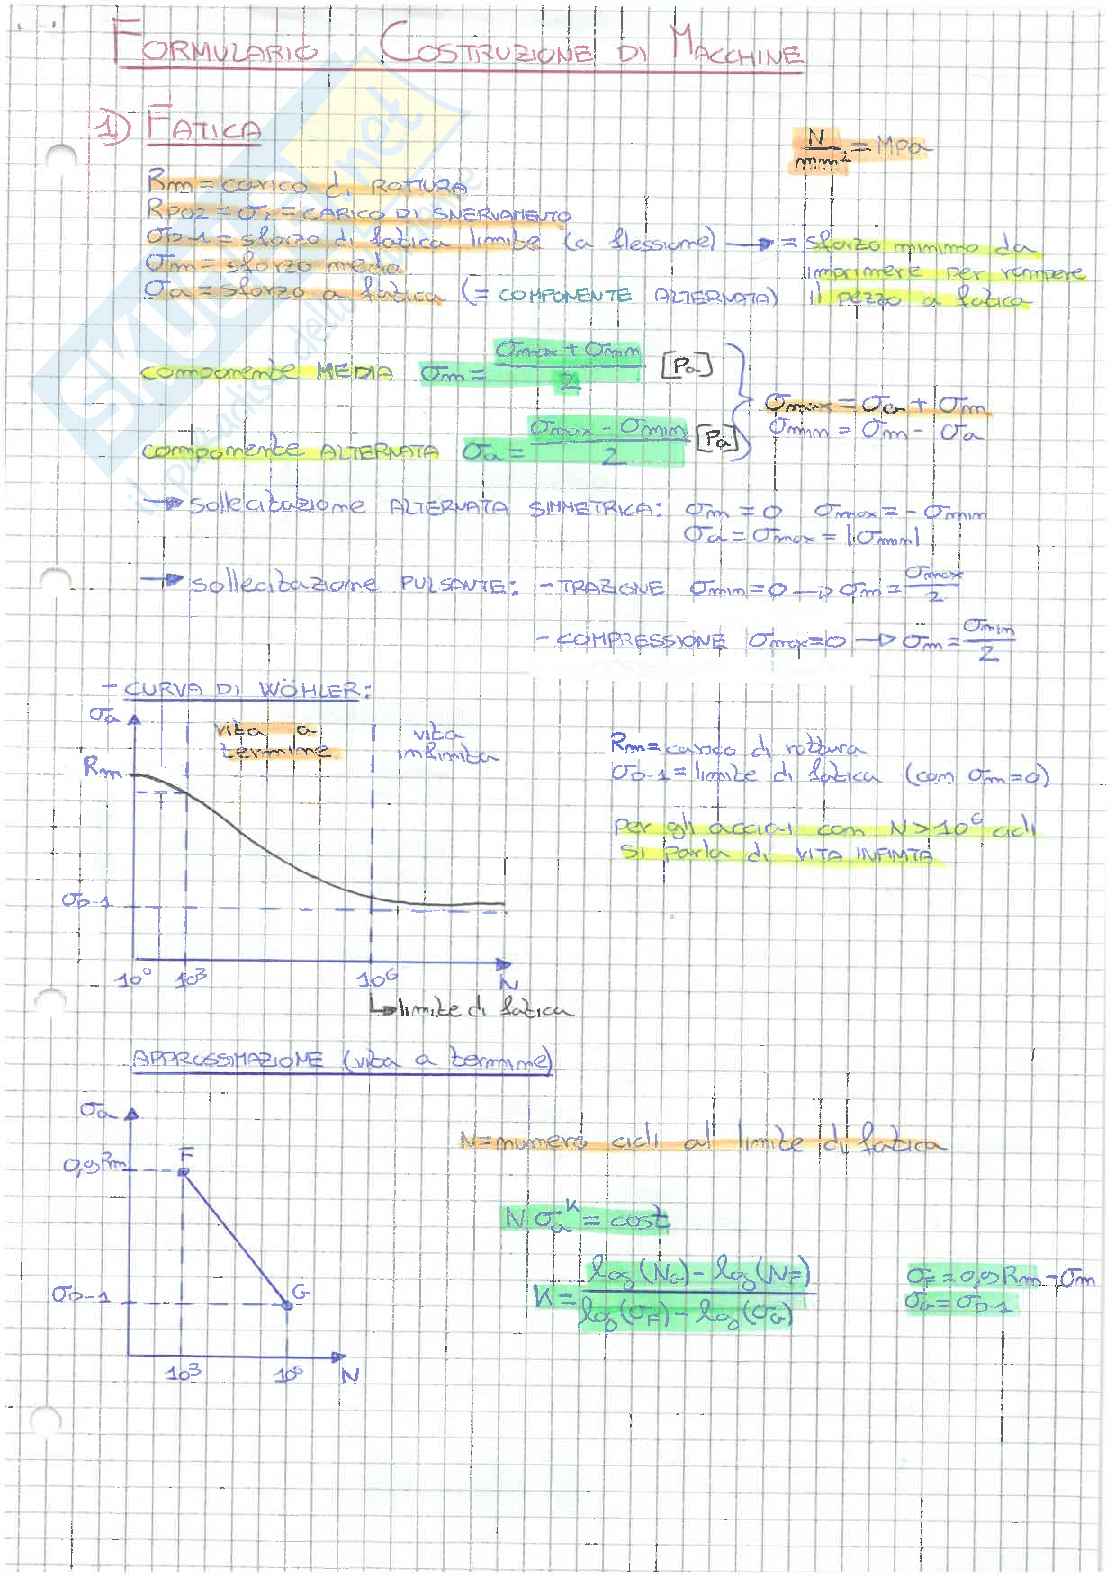 FORMULARIO COSTRUZIONE DI MACCHINE
1) FATICA
N/mm² = MPa
Rm = carico di ROTTURA
RP02 = σs = CARICO DI SNERVAMENTO
σD-1 = sforzo di fatica limite (a flessione) → = sforzo minimo da
imprimere per rompere
il pezzo a fatica
σm = sforzo medio
σa = sforzo a fatica (= COMPONENTE ALTERNATA)
componente MEDIA σm = (σmax + σmin)/2 [Pa]
σmax = σa + σm
σmin = σm - σa
componente ALTERNATA σa = (σmax - σmin)/2 [Pa]
→ sollecitazione ALTERNATA SIMMETRICA: σm = 0 σmax = - σmin
σa = σmax = |σmin|
→ sollecitazione PULSANTE: - TRAZIONE σmin = 0 → σm = σmax/2
- COMPRESSIONE σmax = 0 → σm = σmin/2
- CURVA DI WÖHLER:
σa
vita a termine
vita infinita
Rm
σD-1
10⁰ 10³ 10⁶ N
↳ limite di fatica
Rm = carico di rottura
σD-1 = limite di fatica (con σm = 0)
per gli acciai con N > 10⁶ cicli
si parla di VITA INFINITA
APPROSSIMAZIONE (vita a termine)
σa
0,9Rm
F
σD-1
G
10³ N
N = numero cicli al limite di fatica
N σa^K = cost
K = (log(NG) - log(NF))/(log(σF) - log(σG))
σF = 0,9Rm - σm
σG = σD-1
SKUOLA.net